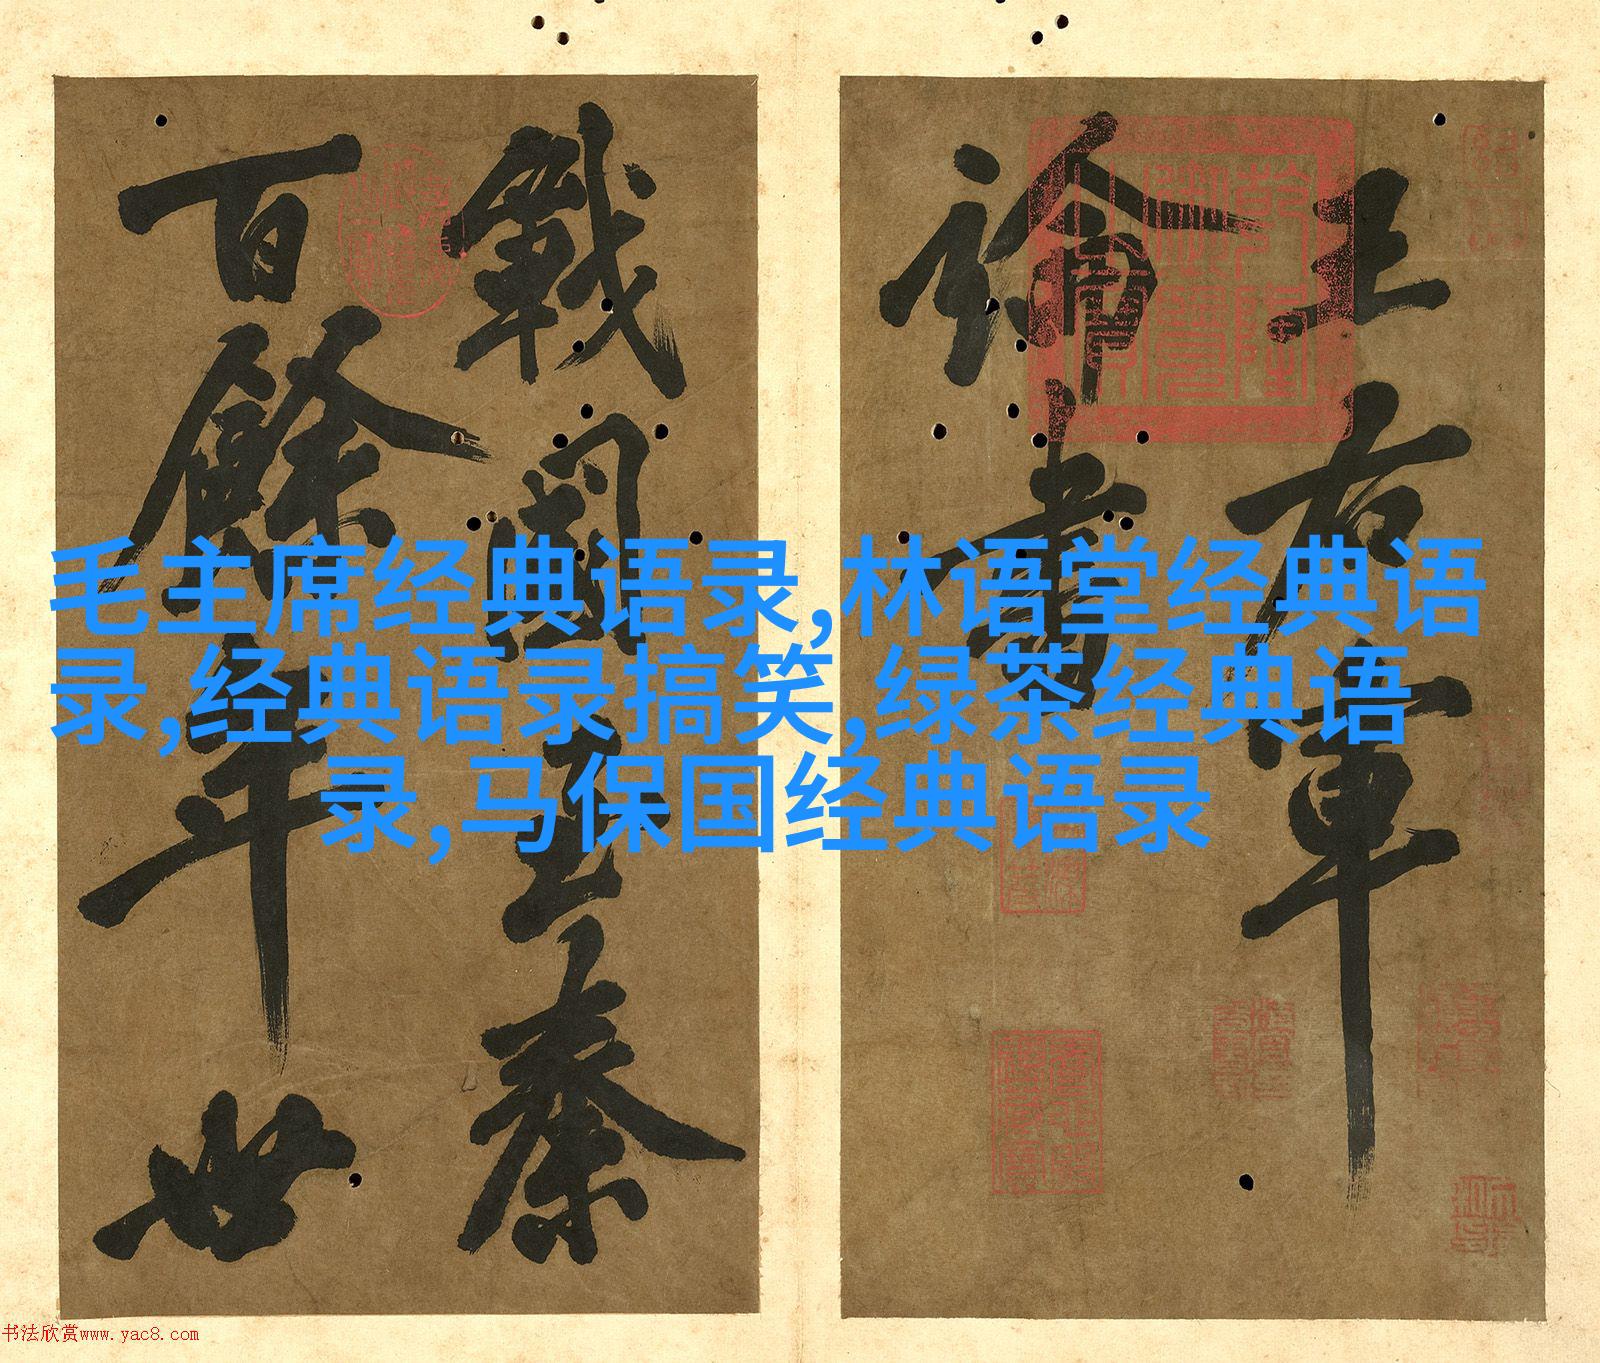 王右軍
論書
戰國至秦
百餘年世
乾隆
御覽
之寶
毛主席经典语录,林语堂经典语
录,经典语录搞笑,绿茶经典语
录,马保国经典语录
书法欣赏www.yac8.com